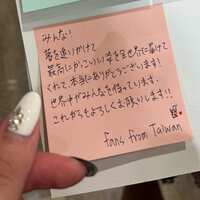 みんな!
夢を追いかけて
最高にかっこいい姿を全世界に届けて
くれて、本当にありがとうございます!
世界中がみんなを待っています.
これからもよろしくお願いします!!
fans from Taiwan